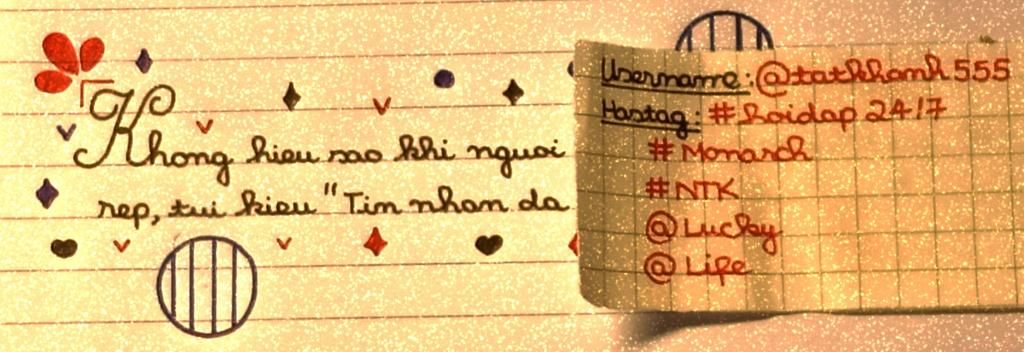 Khong hieu sao khi nguoi
rep, tui kieu "Tin nhan da
Username: @tatkhanh555
Hastag: #hoidap 24/7
#Monarch
#NTK
@Lucky
@Life